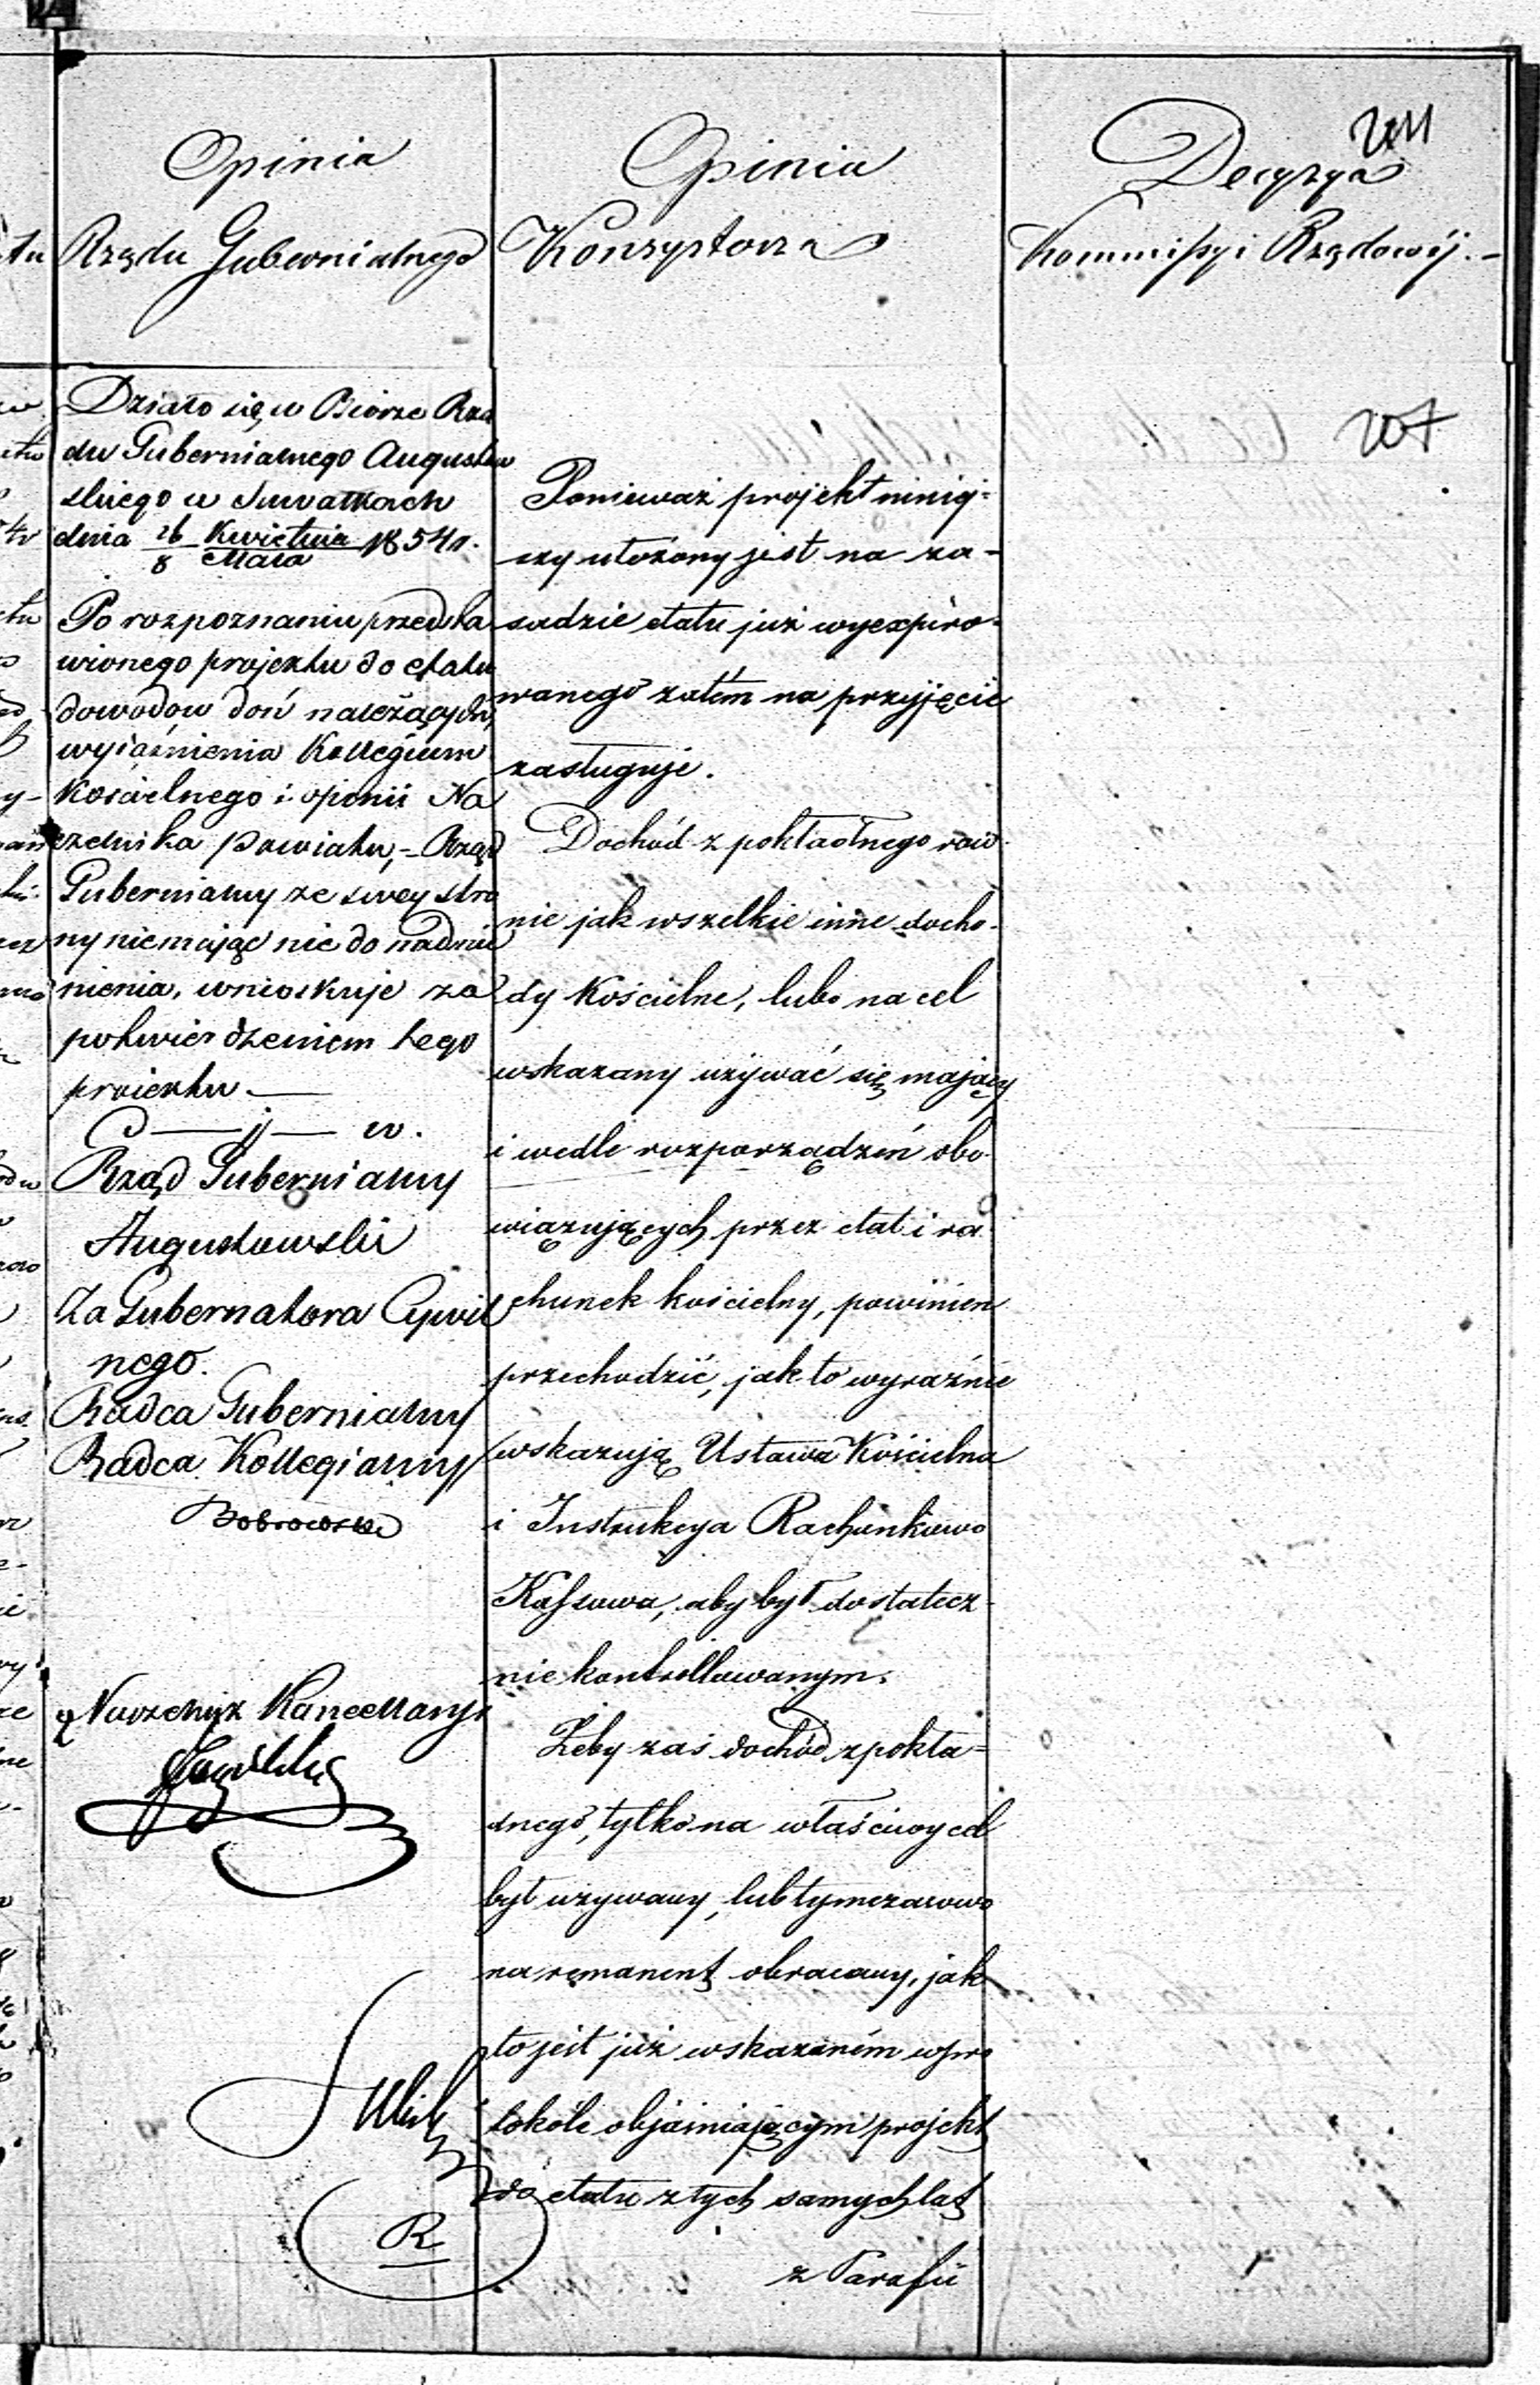 Opinia
Rządu Gubernialnego
Działo się w Biórze Rzą
du Gubernialnego Augustow
skiego w Suwałkach
dnia 26/8 Kwietnia/Maia 1854 r.
Po rozpoznaniu przedsta
wionego projektu do etatu
dowodow doń należących,
wyiaśnienia Kollegium
Kościelnego i opinii Na
czelnika Powiatu, - Rząd
Gubernialny ze swey stro
ny niemając nic do nadmie
nienia, wnioskuje za
potwierdzeniem tego
proiektu. —
Rząd Gubernialny
Augustowski
Za Gubernatora Cywil
nego.
Radca Gubernialny
Radca Kollegialny
Dobrowolski
Naczelnik Kancellaryi
R
Opinia
Konsystorza
Ponieważ projekt niniej=
szy ułożony jest na za-
sadzie etatu już wyexpiro-
wanego zatém na przyjęcie
zasługuje.
Dochód z pokładnego row
nie jak wszelkie inne docho-
dy Kościelne, lubo na cel
wskazany używać się mający
i wedle rozporządzeń obo-
wiązujących przez etat i ra
chunek kościelny, powinien
przechodzić, jak to wyraźnie
wskazują Ustawa Kościelna
i Instrukcya Rachunkowo
Kassowa, aby był dostatecz-
nie kontrollowanym.
Żeby zaś dochód z pokła=
dnego, tylko na właściwy cel
był używany, lub tymczasowo
na remanent obracany, jak
to jest już wskazaném w pro
tokóle objaśniającym projekt
do etatu z tych samych lat
z Parafii
Decyzya
Kommissyi Rządowéj. -